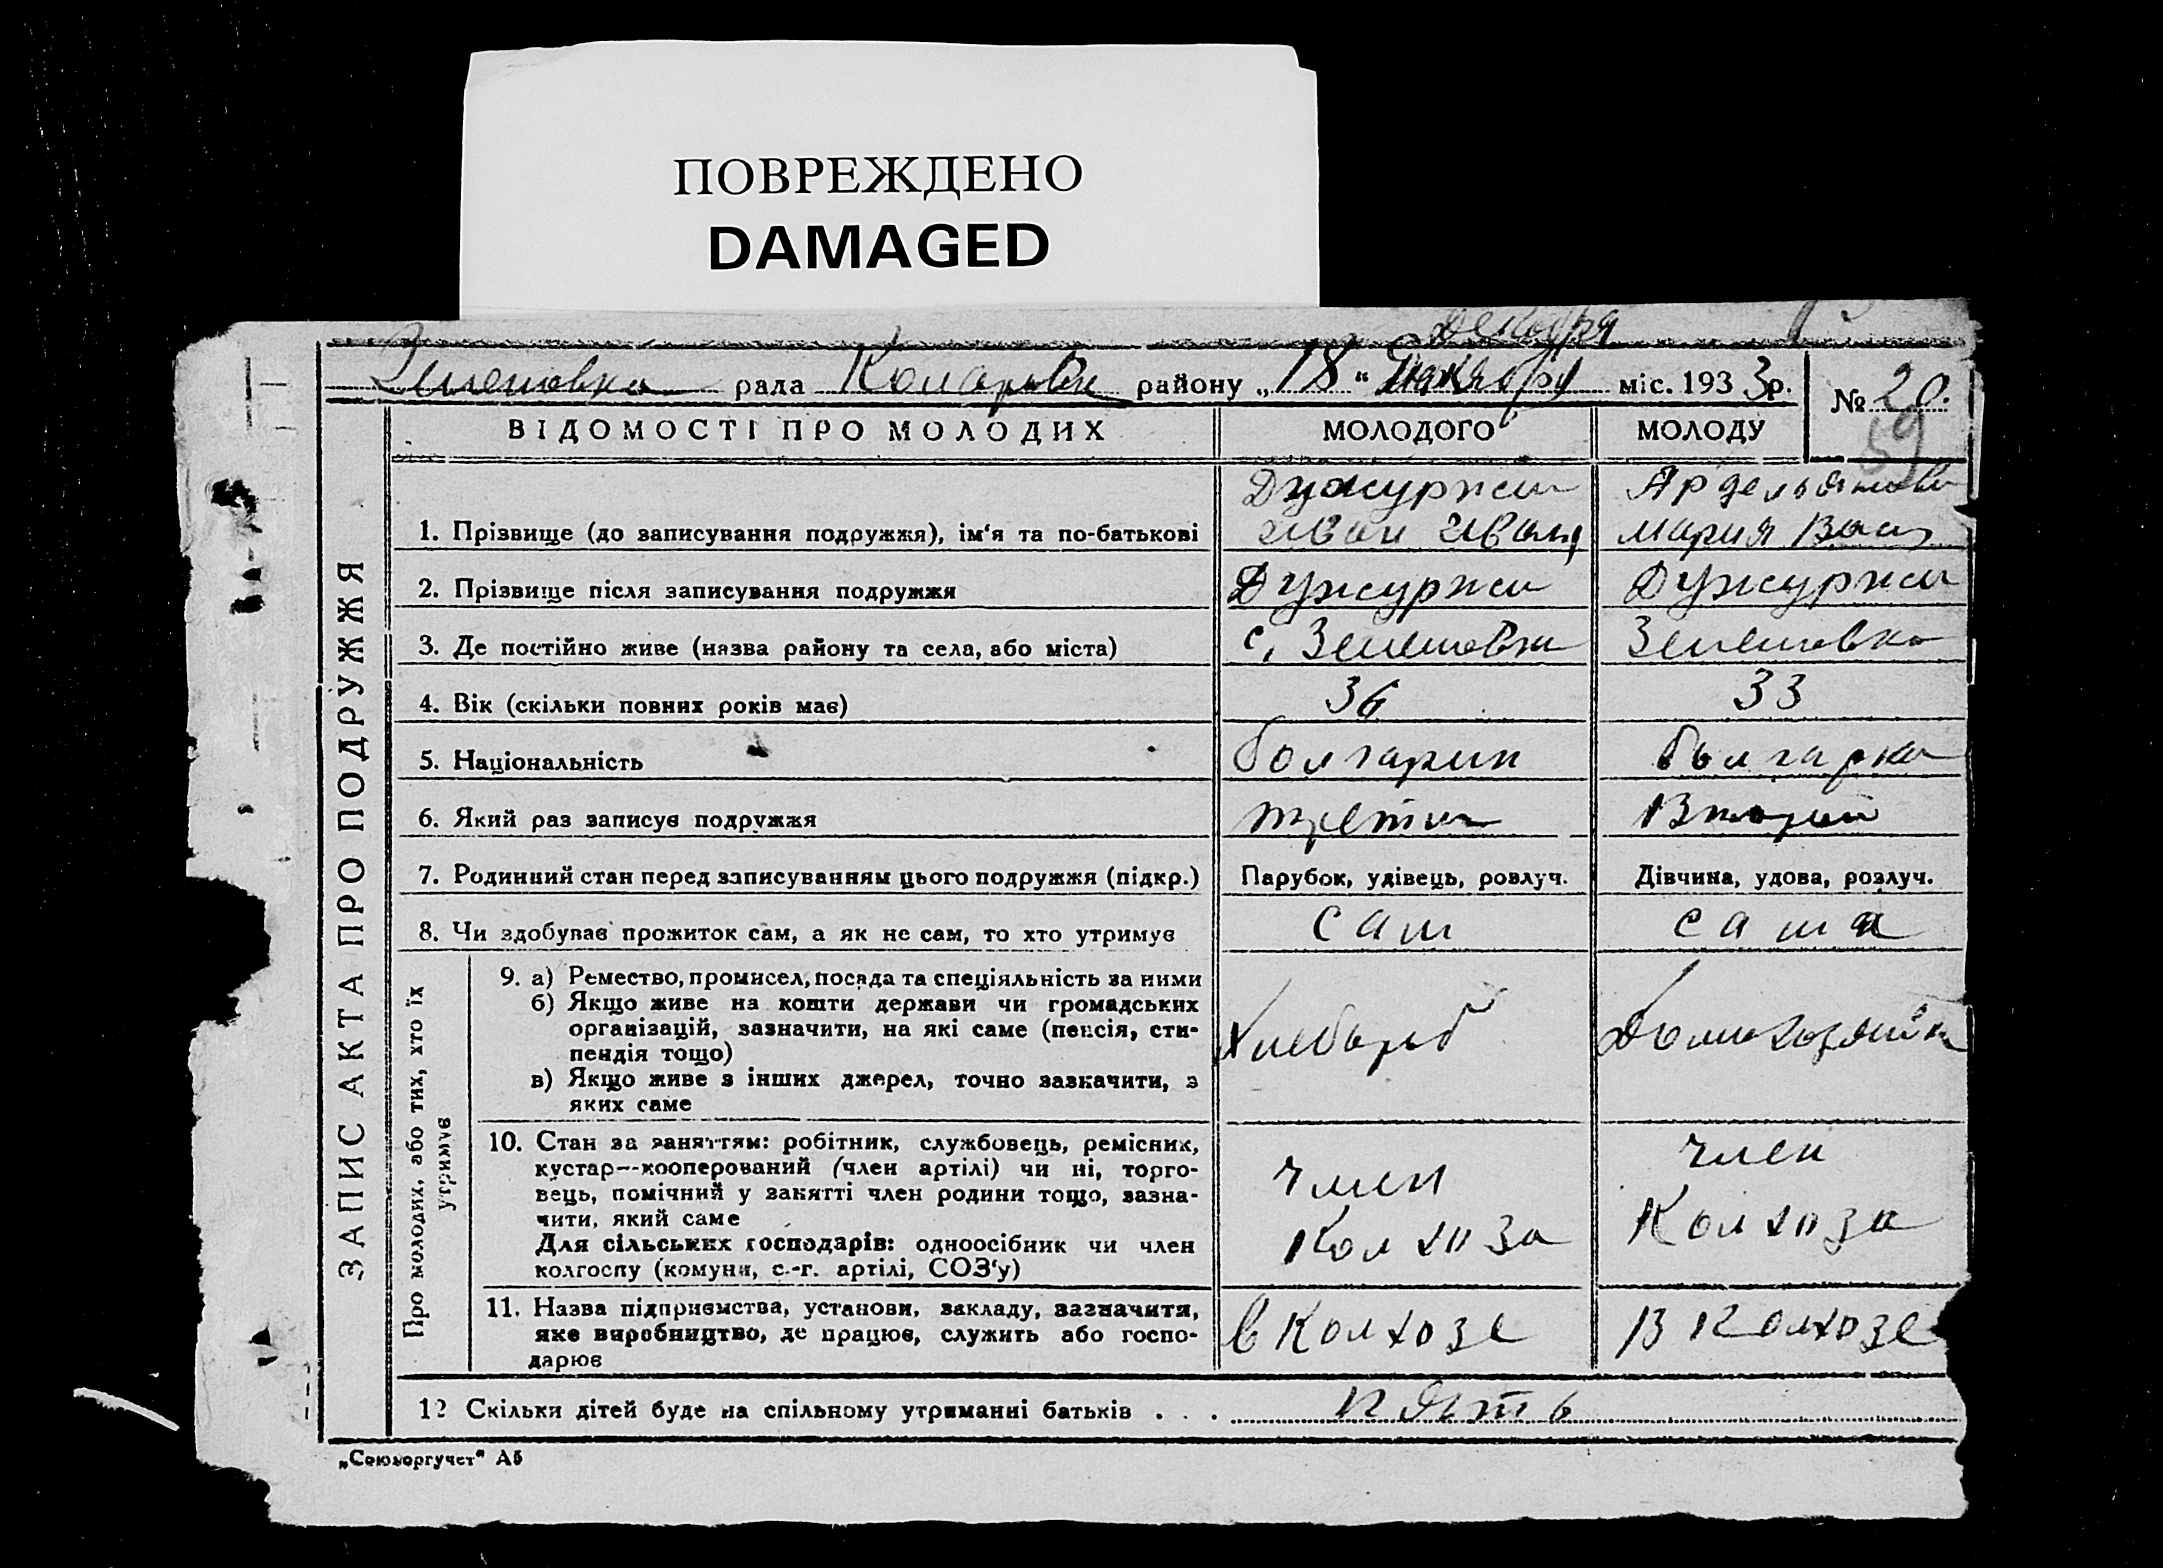 ПОВРЕЖДЕНО
DAMAGED
декабря
Зеленовка рада Коларовск району „18“ міс. 1933р. № 20.
59
ВІДОМОСТІ ПРО МОЛОДИХ МОЛОДОГО МОЛОДУ
ЗАПИС АКТА ПРО ПОДРУЖЖЯ
Дужуржи Арделянова
1. Прізвище (до записування подружжя), ім‘я та по-батькові Иван Иван Мария Вас
2. Прізвище після записування подружжя Дужуржи Дужуржи
3. Де постійно живе (назва району та села, або міста) с. Зеленовка Зеленовка
4. Вік (скільки повних років має) 36 33
5. Національність болгарин болгарка
6. Який раз записує подружжя трети Вторий
7. Родинний стан перед записуванням цього подружжя (підкр.) Парубок, удівець, розлуч. Дівчина, удова, розлуч.
8. Чи здобував прожиток сам, а як не сам, то хто утримує сам сама
Про молодих, або тих, хто їх утримув
9. а) Ремество, промисел, посада та спеціяльність за ними
б) Якщо живе на кошти держави чи громадських
організацій, зазначити, на які саме (пенсія, сти-
пендія тощо) Хлебороб Домохозяйка
в) Якщо живе з інших джерел, точно зазначити, з
яких саме
10. Стан за заняттям: робітник, службовець, ремісник,
кустар—кооперований (член артілі) чи ні, торго- член член
вець, помічний у занятті член родини тощо, зазна-
чити, який саме Колхоза Колхоза
Для сільських господарів: одноосібник чи член
колгоспу (комуни, с.-г. артілі, СОЗ‘у)
11. Назва підприємства, установи, закладу, зазначити,
яке виробництво, де працює, служить або госпо- в Колхозе В Колхозе
дарює
12 Скільки дітей буде на спільному утриманні батьків . . . пять
„Союзоргучет“ А5